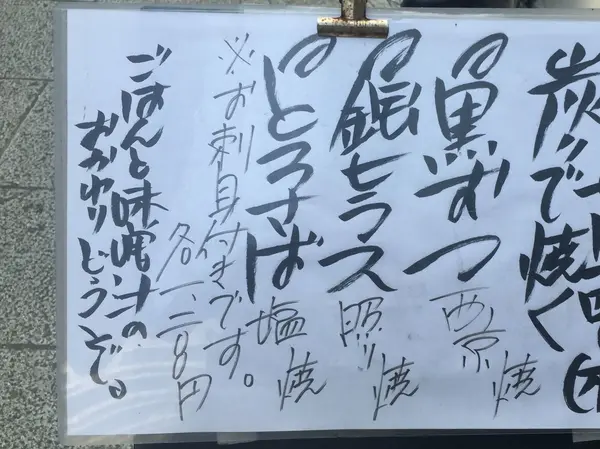 炭火で焼く
黒むつ 西京焼
銀ヒラス 照り焼
とろさば 塩焼
※お刺身付きです。
各 円
ごはんと味噌汁の
おかわりどうぞ。